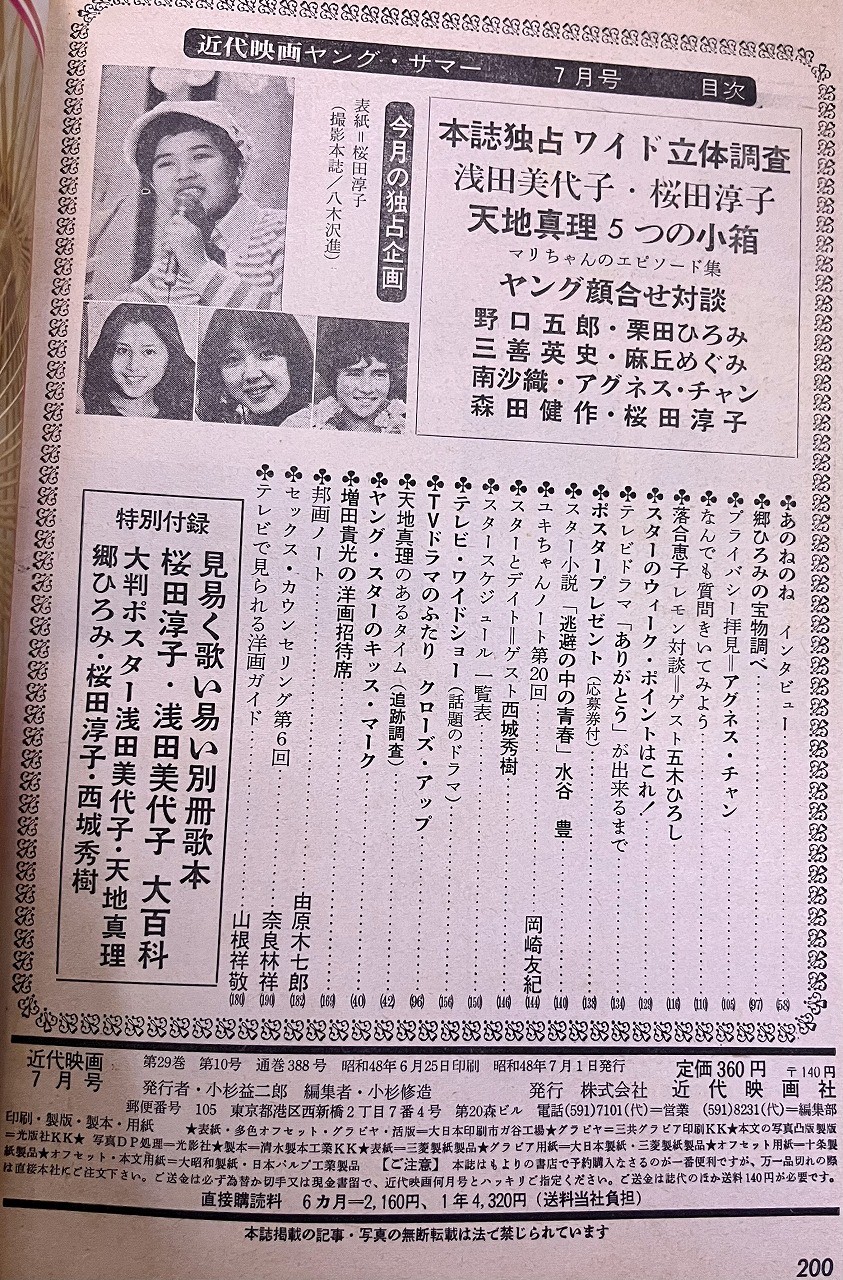 近代映画ヤング・サマー 7月号 目次
本誌独占ワイド立体調査
浅田美代子・桜田淳子
天地真理5つの小箱
マリちゃんのエピソード集
ヤング顔合せ対談
野口五郎・栗田ひろみ
三善英史・麻丘めぐみ
南沙織・アグネス・チャン
森田健作・桜田淳子
今月の独占企画
表紙=桜田淳子
(撮影本誌/八木沢進)
♣あのねのね インタビュー (58)
♣郷ひろみの宝物調べ (97)
♣プライバシー拝見=アグネス・チャン (105)
♣なんでも質問きいてみよう (110)
♣落合恵子レモン対談=ゲスト五木ひろし (116)
♣スターのウィーク・ポイントはこれ! (129)
♣テレビドラマ「ありがとう」が出来るまで (134)
♣ポスタープレゼント(応募券付) (138)
♣スター小説「逃避の中の青春」水谷 豊 (140)
♣ユキちゃんノート第20回 岡崎友紀 (144)
♣スターとデイト=ゲスト西城秀樹 (146)
♣スタースケジュール一覧表 (150)
♣テレビ・ワイドショー(話題のドラマ) (156)
♣TVドラマのふたり クローズ・アップ (96)
♣天地真理のあるタイム(追跡調査) (42)
♣ヤング・スターのキッス・マーク (40)
♣増田貴光の洋画招待席 (163)
♣邦画ノート 由原木七郎 (182)
♣セックス・カウンセリング第6回 奈良林祥 (190)
♣テレビで見られる洋画ガイド 山根祥敬 (180)
特別付録
見易く歌い易い別冊歌本
桜田淳子・浅田美代子 大百科
大判ポスター浅田美代子・天地真理
郷ひろみ・桜田淳子・西城秀樹
近代映画 7月号
第29巻 第10号 通巻388号 昭和48年6月25日印刷 昭和48年7月1日発行 定価360円 〒140円
発行者・小杉益二郎 編集者・小杉修造 発行 株式会社 近代映画社
郵便番号 105 東京都港区西新橋2丁目7番4号 第20森ビル 電話(591)7101(代)=営業 (591)8231(代)=編集部
印刷・製版・製本・用紙 ★表紙・多色オフセット・グラビヤ・活版=大日本印刷市ガ谷工場★グラビヤ=三共グラビア印刷KK★本文の写真凸版製版
=光版社KK★写真DP処理=光影社★製本=清水製本工業KK★表紙=三菱製紙製品★グラビア用紙=大日本製紙・三菱製紙製品★オフセット用紙=十条製
紙製品★オフセット・本文用紙=大昭和製紙・日本パルプ工業製品 【ご注意】 本誌はもよりの書店で予約購入なさるのが一番便利ですが、万一品切れの際
は直接本社にご注文下さい。ご送金は必ず為替か切手又は現金書留で、近代映画何月号とハッキリご指定ください。ご送金は誌代のほか送料140円が必要です。
直接購読料 6カ月=2,160円、1年4,320円(送料当社負担)
本誌掲載の記事・写真の無断転載は法で禁じられています
200